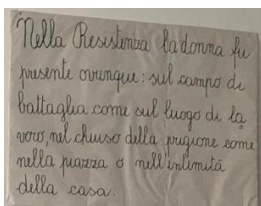 Nella Resistenza la donna fu
presente ovunque: sul campo di
battaglia come sul luogo di la
voro, nel chiuso della prigione come
nella piazza o nell'intimità
della casa.